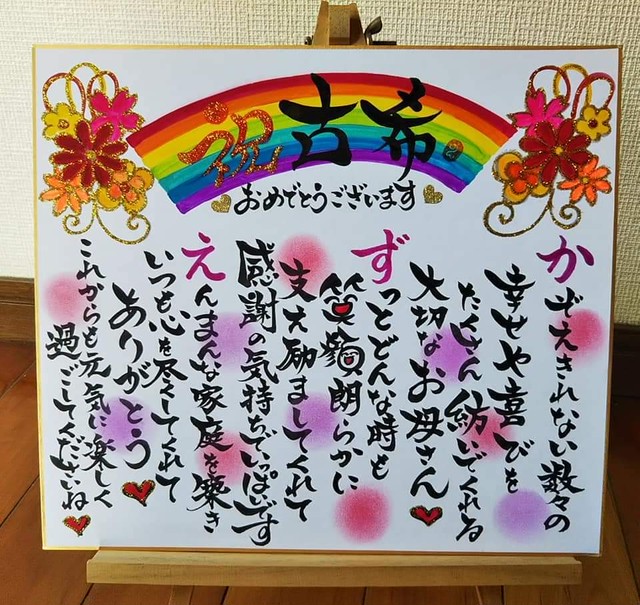 祝古希
おめでとうございます
かぞえきれない数々の
幸せや喜びを
たくさん紡いでくれる
大切なお母さん
ずっとどんな時も
笑顔朗らかに
支え励ましてくれて
感謝の気持ちでいっぱいです
えんまんな家庭を築き
いつも心を尽くしてくれて
ありがとう
これからも元気に楽しく
過ごしてくださいね